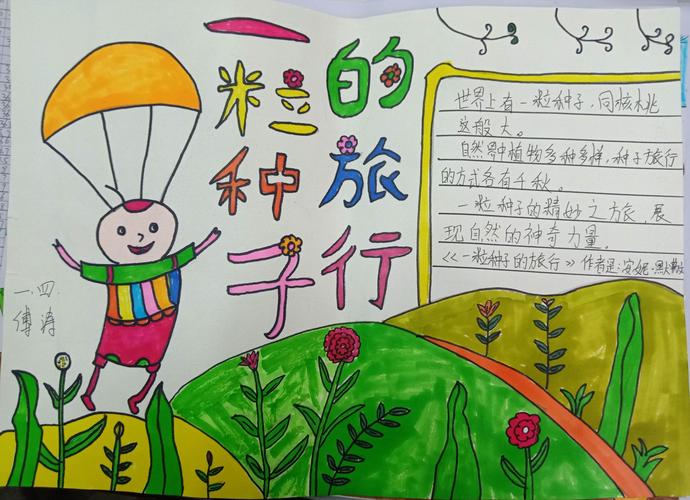 一粒种子
的旅行
世界上有一粒种子,同核桃
这般大。
自然界中植物多种多样,种子旅行
的方式各有千秋。
一粒种子的精妙之旅,展
现自然的神奇力量。
《一粒种子的旅行》作者是:安妮·默
一.四
傅涛